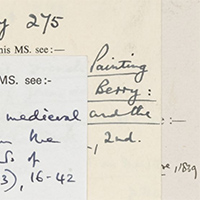 y 275
his MS. see:—
Painting
Berry:
MS. see:—
medieval and the
in the , 2nd.
S of
3), 16-42